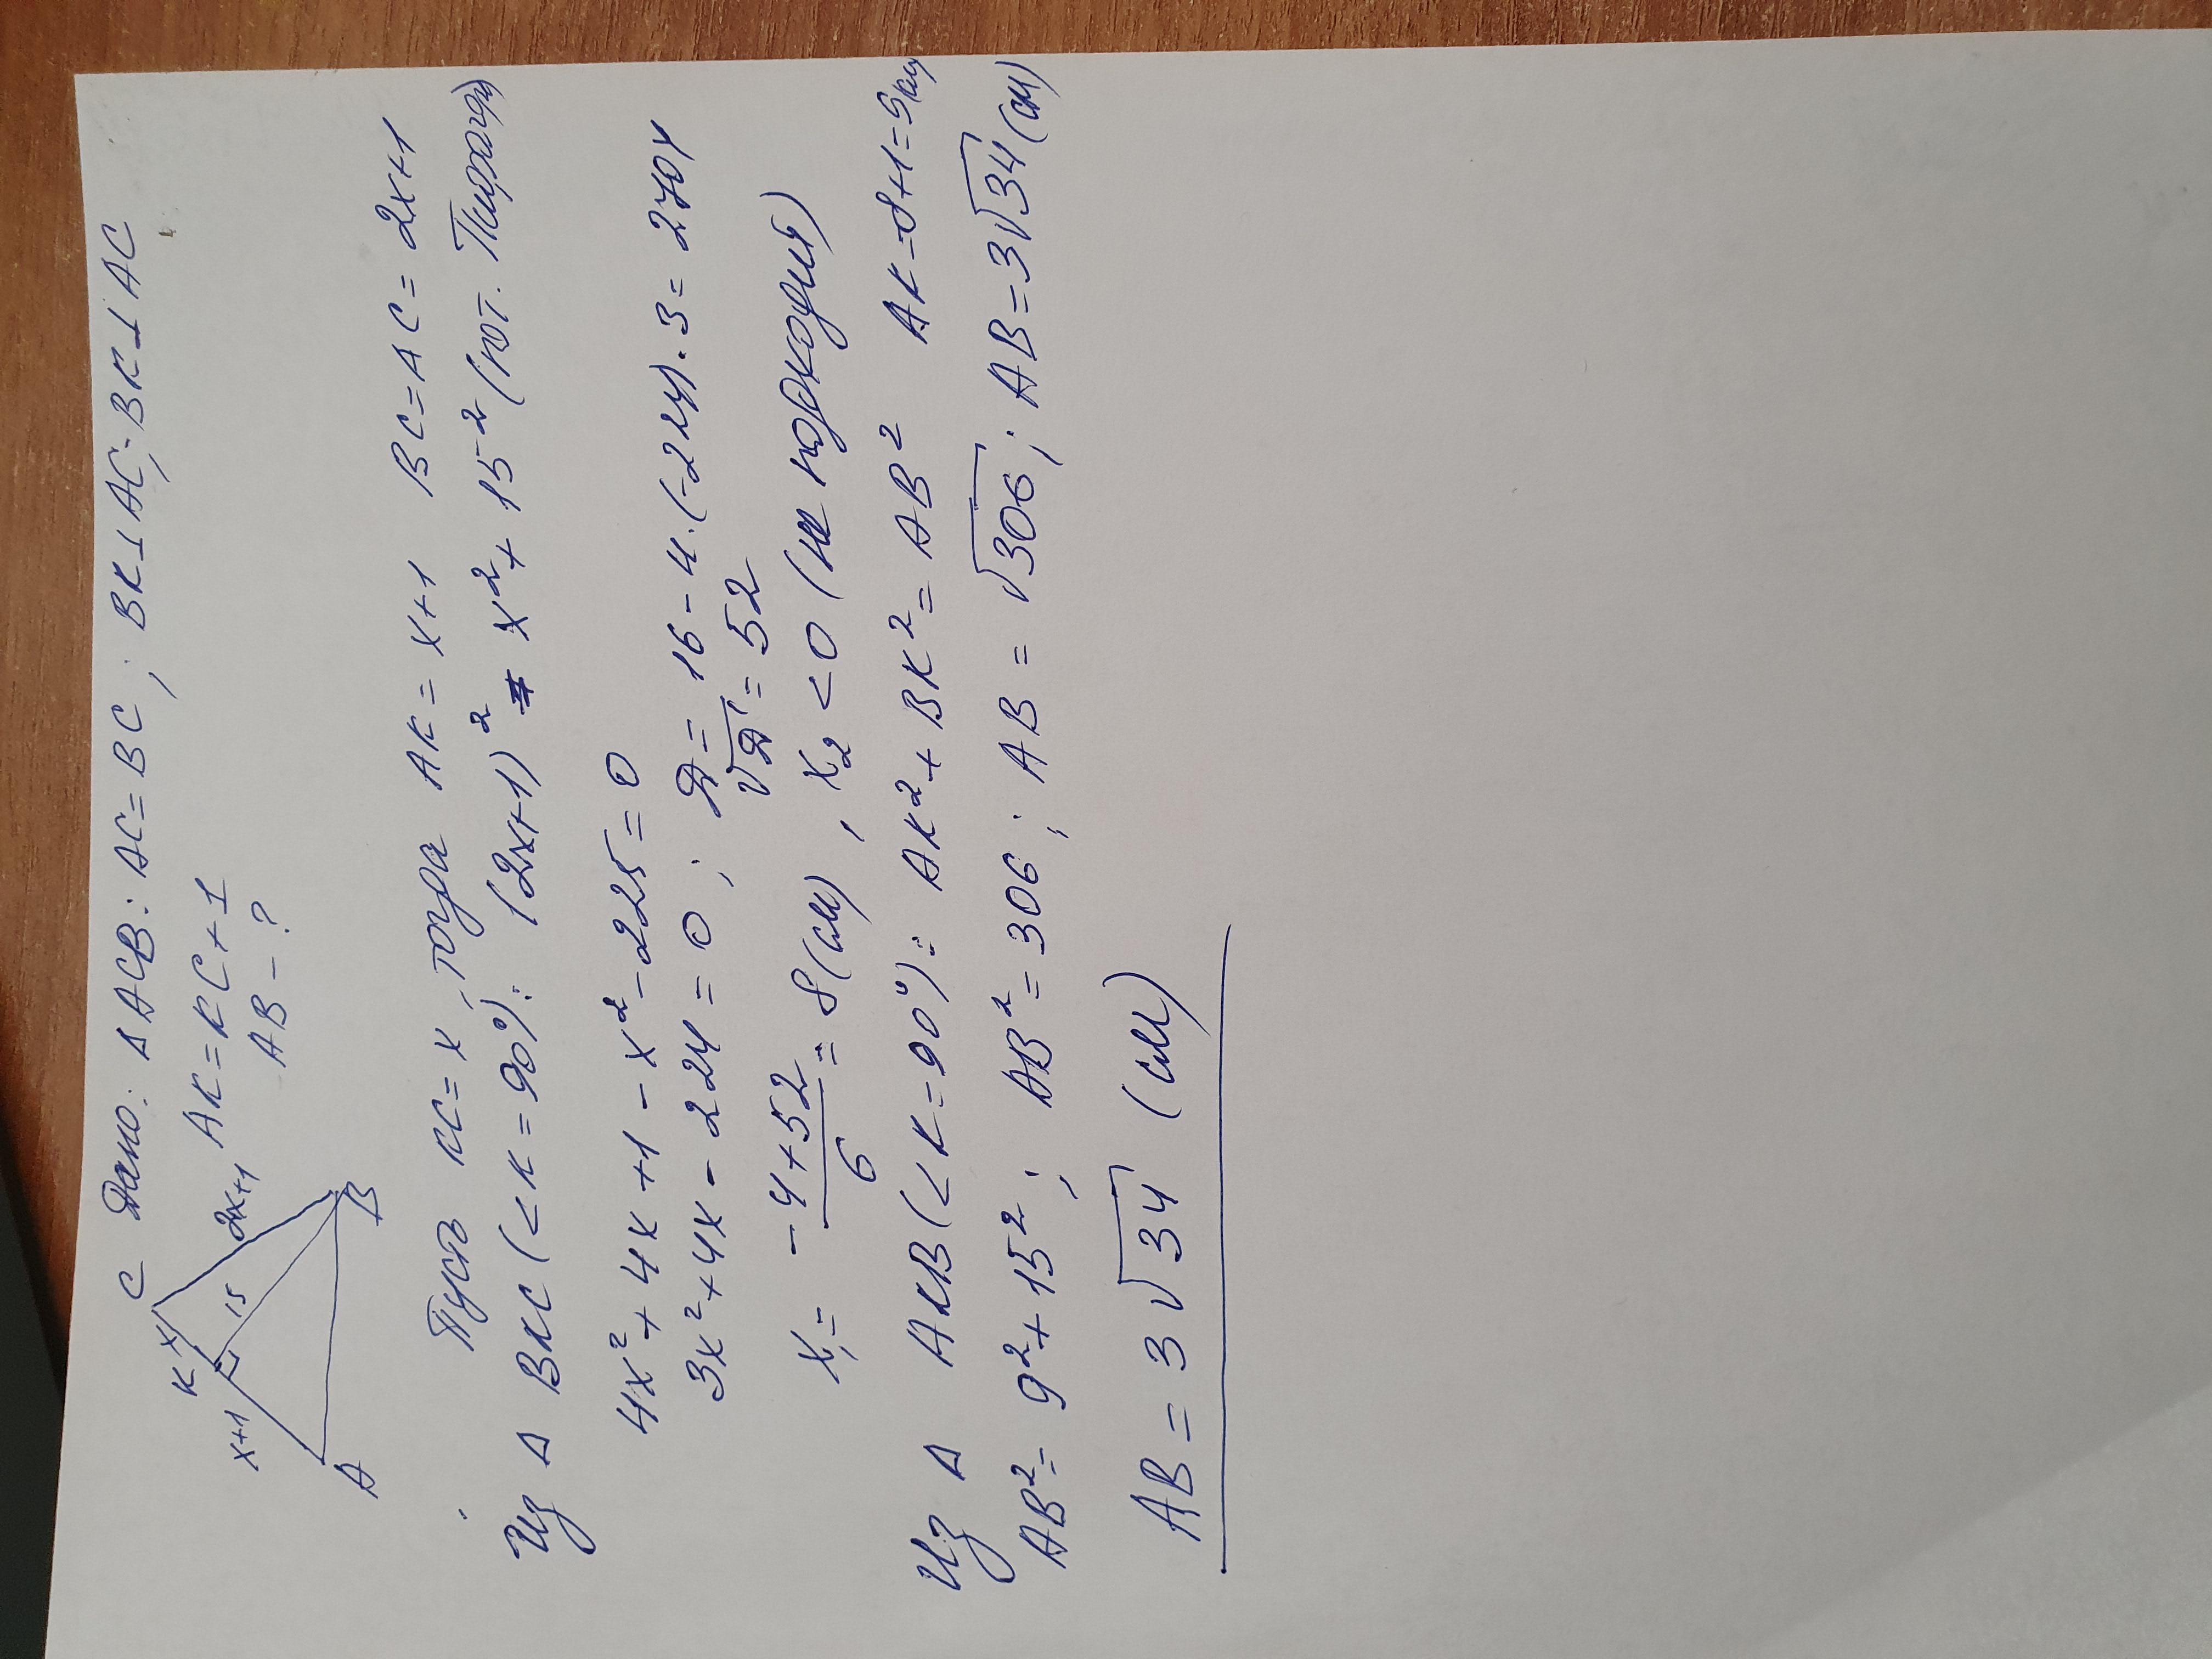 C Дано: Δ ACB: AC = BC; BK ⊥ AC; BK ⊥ AC
AK = KC + 1
AB - ?
K x 2x+1
x+1 15
A B
Пусть KC = x, тогда AK = x+1 BC = AC = 2x+1
Из Δ BKC (<K = 90°): (2x+1)² = x² + 15² (по т. Пифагора)
4x² + 4x + 1 - x² - 225 = 0
3x² + 4x - 224 = 0; D = 16 - 4·(-224)·3 = 2704
√D = 52
x₁ = -4+52/6 = 8 (см), x₂ < 0 (не подходит)
Из Δ AKB (<K = 90°): AK² + BK² = AB² AK = 8+1 = 9 (см)
AB² = 9² + 15²; AB² = 306; AB = √306; AB = 3√34 (см)
AB = 3√34 (см)